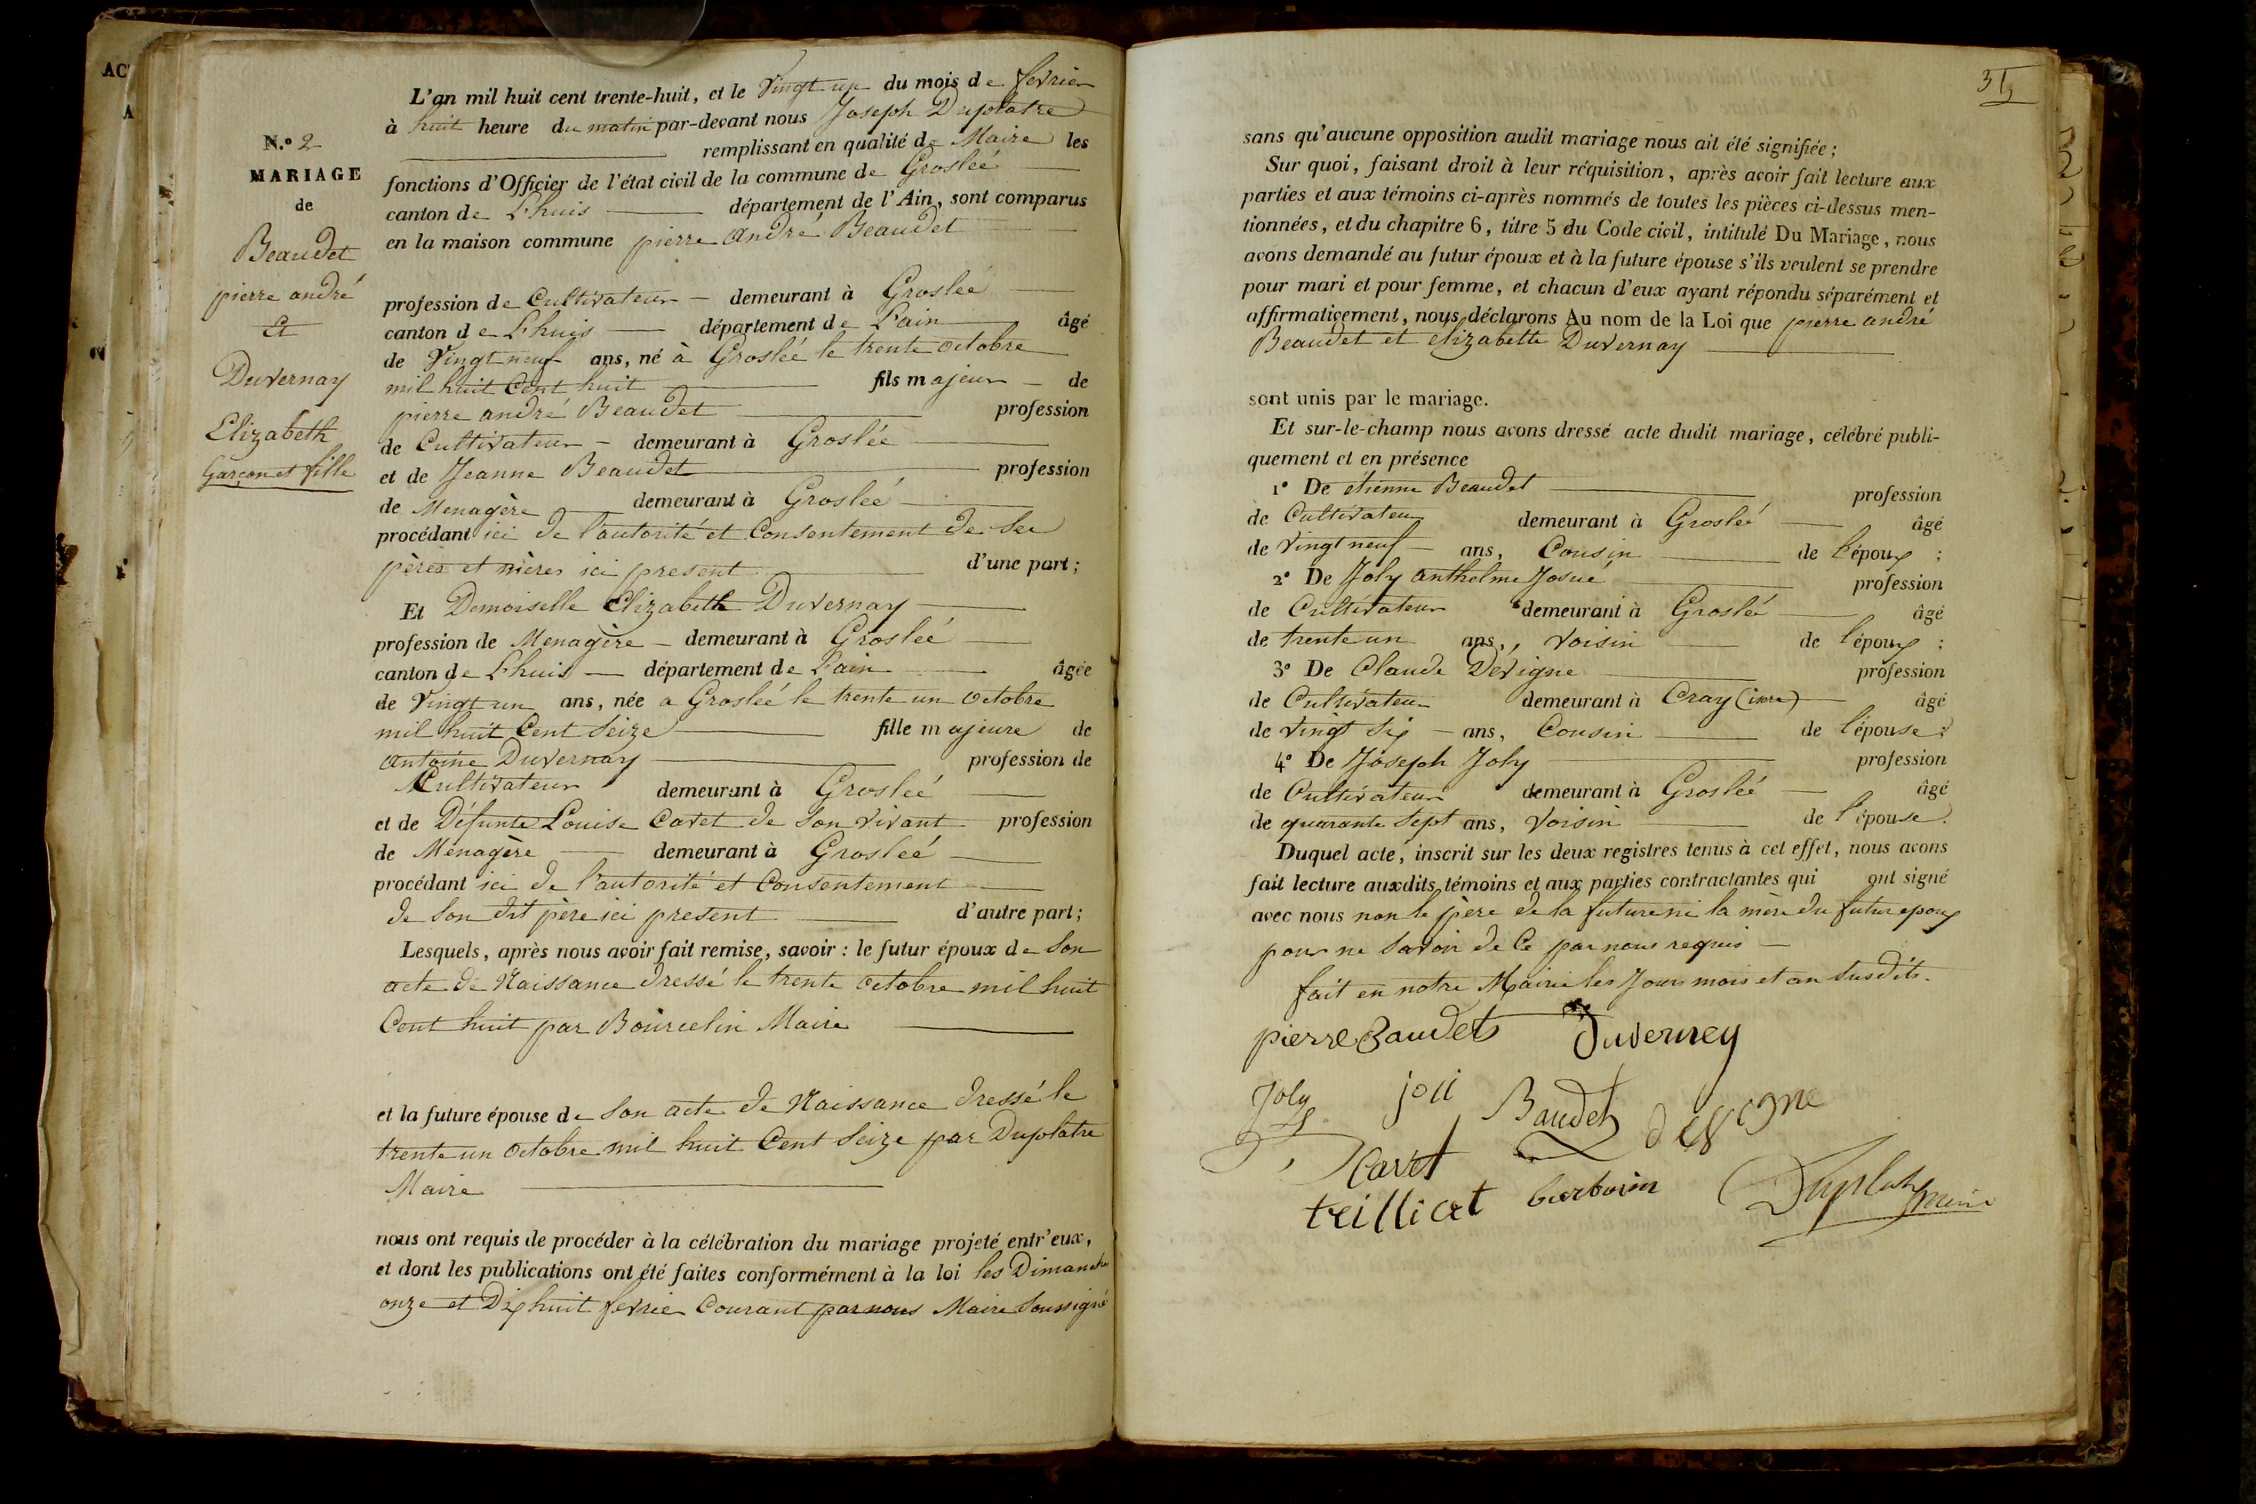 N.º 2
MARIAGE
de
Beaudet
pierre andré
et
Duvernay
Elizabeth
Garçon et fille
L'an mil huit cent trente-huit, et le vingt un du mois de fevrier
à huit heure du matin par-devant nous Joseph Duplatre
remplissant en qualité de Maire les
fonctions d'Officier de l'état civil de la commune de Grosleé
canton de Lhuis département de l'Ain, sont comparus
en la maison commune pierre andré Beaudet
profession de Cultivateur demeurant à Grosleé
canton de Lhuis département de L'ain âgé
de vingt neuf ans, né à Grosleé le trente octobre
mil huit Cent huit fils majeur de
pierre andré Beaudet profession
de Cultivateur demeurant à Groslée
et de Jeanne Beaudet profession
de Menagère demeurant à Grosleé
procédant ici de l'autorité et Consentement de Ses
pères et mères ici present d'une part;
Et Demoiselle Elizabeth Duvernay
profession de Menagère demeurant à Grosleé
canton de Lhuis département de L'ain âgée
de vingt un ans, née a Grosleé le trente un octobre
mil huit Cent Seize fille majeure de
antoine Duvernay profession de
Cultivateur demeurant à Grosleé
et de Défunte Louise Cavet de Son vivant profession
de Menagère demeurant à Grosleé
procédant ici de l'autorité et Consentement
de Son dit père ici present d'autre part;
Lesquels, après nous avoir fait remise, savoir : le futur époux de Son
acte de Naissance dressé le trente octobre mil huit
Cent huit par Bourcelin Maire
et la future épouse de Son acte de Naissance dressé le
trente un octobre mil huit Cent Seize par Duplatre
Maire
nous ont requis de procéder à la célébration du mariage projeté entr'eux,
et dont les publications ont été faites conformément à la loi les Dimanches
onze et Dix huit fevrier Courant par nous Maire Soussigné
sans qu'aucune opposition audit mariage nous ait été signifiée;
Sur quoi, faisant droit à leur réquisition, après avoir fait lecture aux
parties et aux témoins ci-après nommés de toutes les pièces ci-dessus men-
tionnées, et du chapitre 6, titre 5 du Code civil, intitulé Du Mariage, nous
avons demandé au futur époux et à la future épouse s'ils veulent se prendre
pour mari et pour femme, et chacun d'eux ayant répondu séparément et
affirmativement, nous déclarons Au nom de la Loi que pierre andré
Beaudet et elizabette Duvernay
sont unis par le mariage.
Et sur-le-champ nous avons dressé acte dudit mariage, célébré publi-
quement et en présence
1º De étienne Beaudet profession
de Cultivateur demeurant à Grosleé âgé
de vingt neuf ans, Cousin de l'époux ;
2º De Joly anthelme Josué profession
de Cultivateur demeurant à Grosleé âgé
de trente un ans, voisin de l'époux ;
3º De Claude Devigne profession
de Cultivateur demeurant à Cray (isere) âgé
de vingt Six ans, Cousin de l'épouse ;
4º De Joseph Joly profession
de Cultivateur demeurant à Groslée âgé
de quarante Sept ans, Voisin de l'épouse.
Duquel acte, inscrit sur les deux registres tenus à cet effet, nous avons
fait lecture auxdits témoins et aux parties contractantes qui ont signé
avec nous non le père de la future ni la mère du futur epoux
pour ne Savoir de Ce par nous requis
fait en notre Mairie les Jour mois et an Susdits.
pierre Baudet Duverney
Joly joli Baudet devigne
Cavet
trilliat barboin Duplatre maire